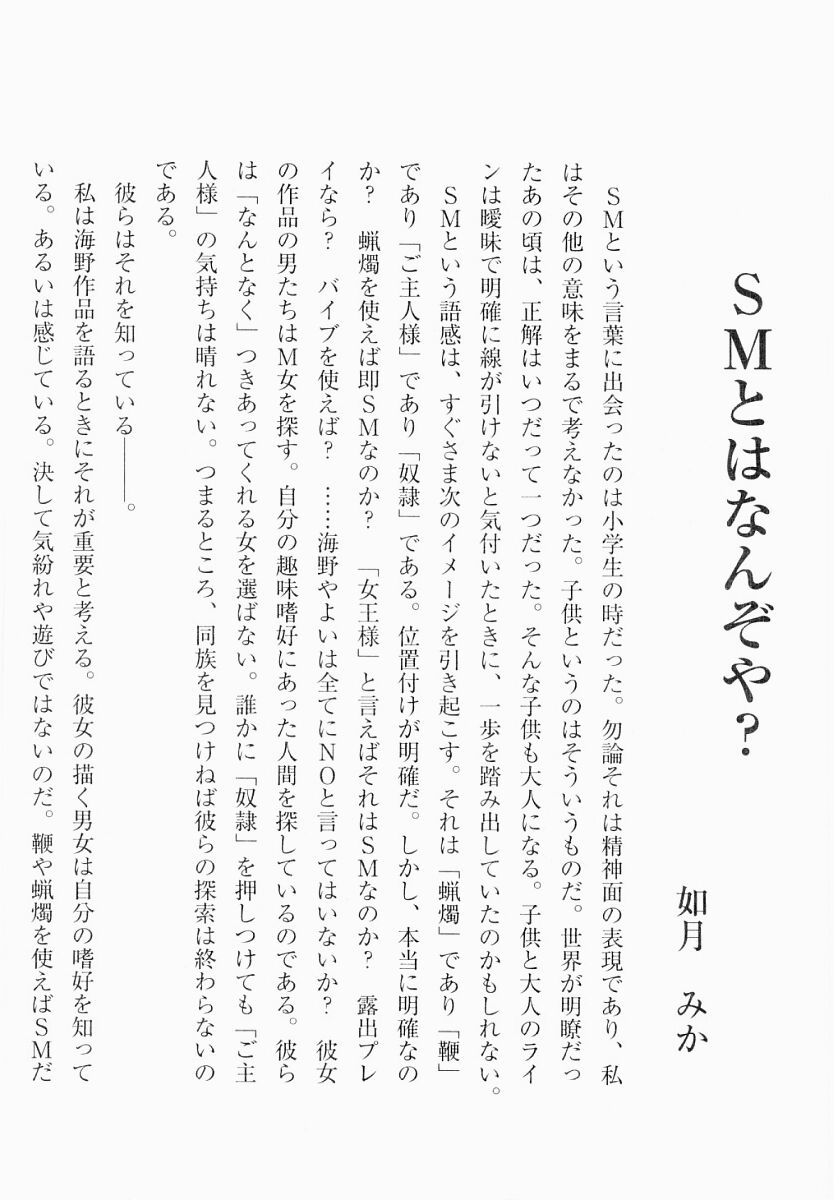 SMとはなんぞや？
如月　みか
　SMという言葉に出会ったのは小学生の時だった。勿論それは精神面の表現であり、私
はその他の意味をまるで考えなかった。子供というのはそういうものだ。世界が明瞭だっ
たあの頃は、正解はいつだって一つだった。そんな子供も大人になる。子供と大人のライ
ンは曖昧で明確に線が引けないと気付いたときに、一歩を踏み出していたのかもしれない。
　SMという語感は、すぐさま次のイメージを引き起こす。それは「蝋燭」であり「鞭」
であり「ご主人様」であり「奴隷」である。位置付けが明確だ。しかし、本当に明確なの
か？　蝋燭を使えば即SMなのか？　「女王様」と言えばそれはSMなのか？　露出プレ
イなら？　バイブを使えば？　……海野やよいは全てにNOと言ってはいないか？　彼女
の作品の男たちはM女を探す。自分の趣味嗜好にあった人間を探しているのである。彼ら
は「なんとなく」つきあってくれる女を選ばない。誰かに「奴隷」を押しつけても「ご主
人様」の気持ちは晴れない。つまるところ、同族を見つけねば彼らの探索は終わらないの
である。
　彼らはそれを知っている――。
　私は海野作品を語るときにそれが重要と考える。彼女の描く男女は自分の嗜好を知って
いる。あるいは感じている。決して気紛れや遊びではないのだ。鞭や蝋燭を使えばSMだ